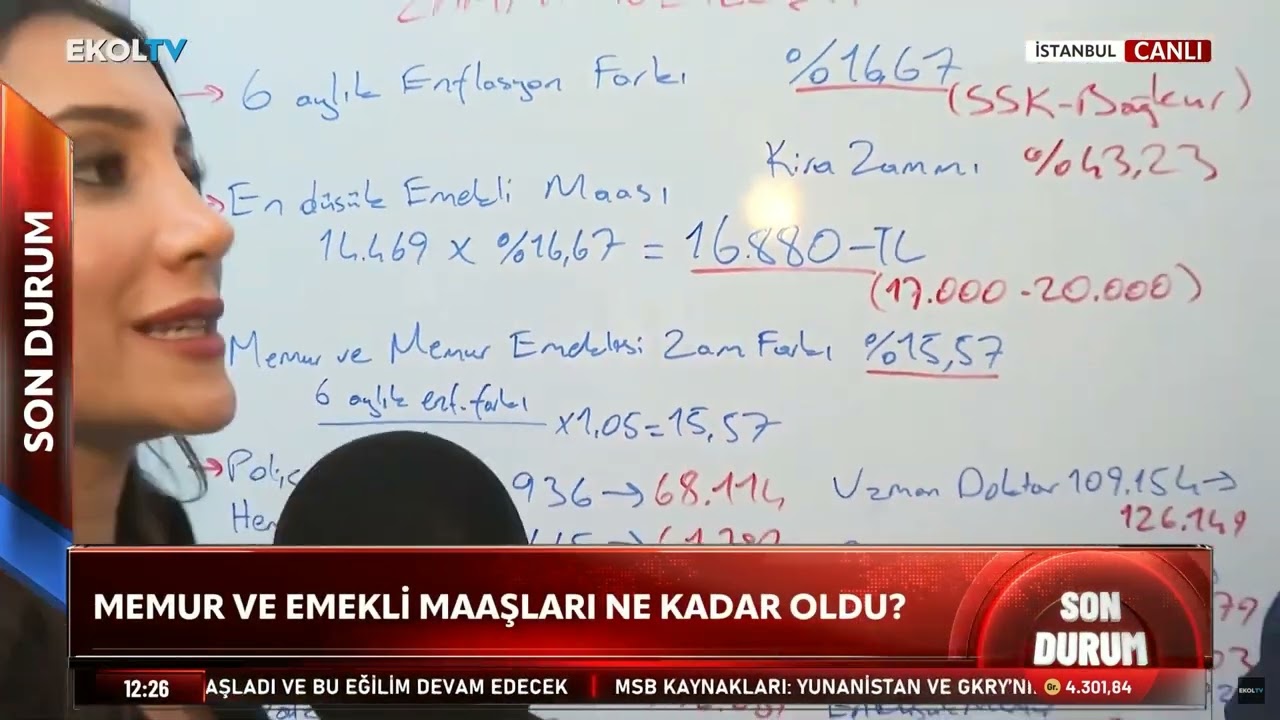 EKOLTV
İSTANBUL CANLI
→ 6 aylık Enflasyon Farkı %16,67
(SSK-Bağkur)
Kira Zammı %43,23
En düşük Emekli Maaşı
14.469 x %16,67 = 16.880-TL
(17.000-20.000)
Memur ve Memur Emeklisi Zam Farkı %15,57
6 aylık enf. farkı x1,05=15,57
936 → 68.114
Uzman Doktor 109.154 →
126.149
SON DURUM
MEMUR VE EMEKLİ MAAŞLARI NE KADAR OLDU?
SON
DURUM
12:26 AŞLADI VE BU EĞİLİM DEVAM EDECEK | MSB KAYNAKLARI: YUNANİSTAN VE GKRY'Nİ Gr. 4.301,84
EKOLTV